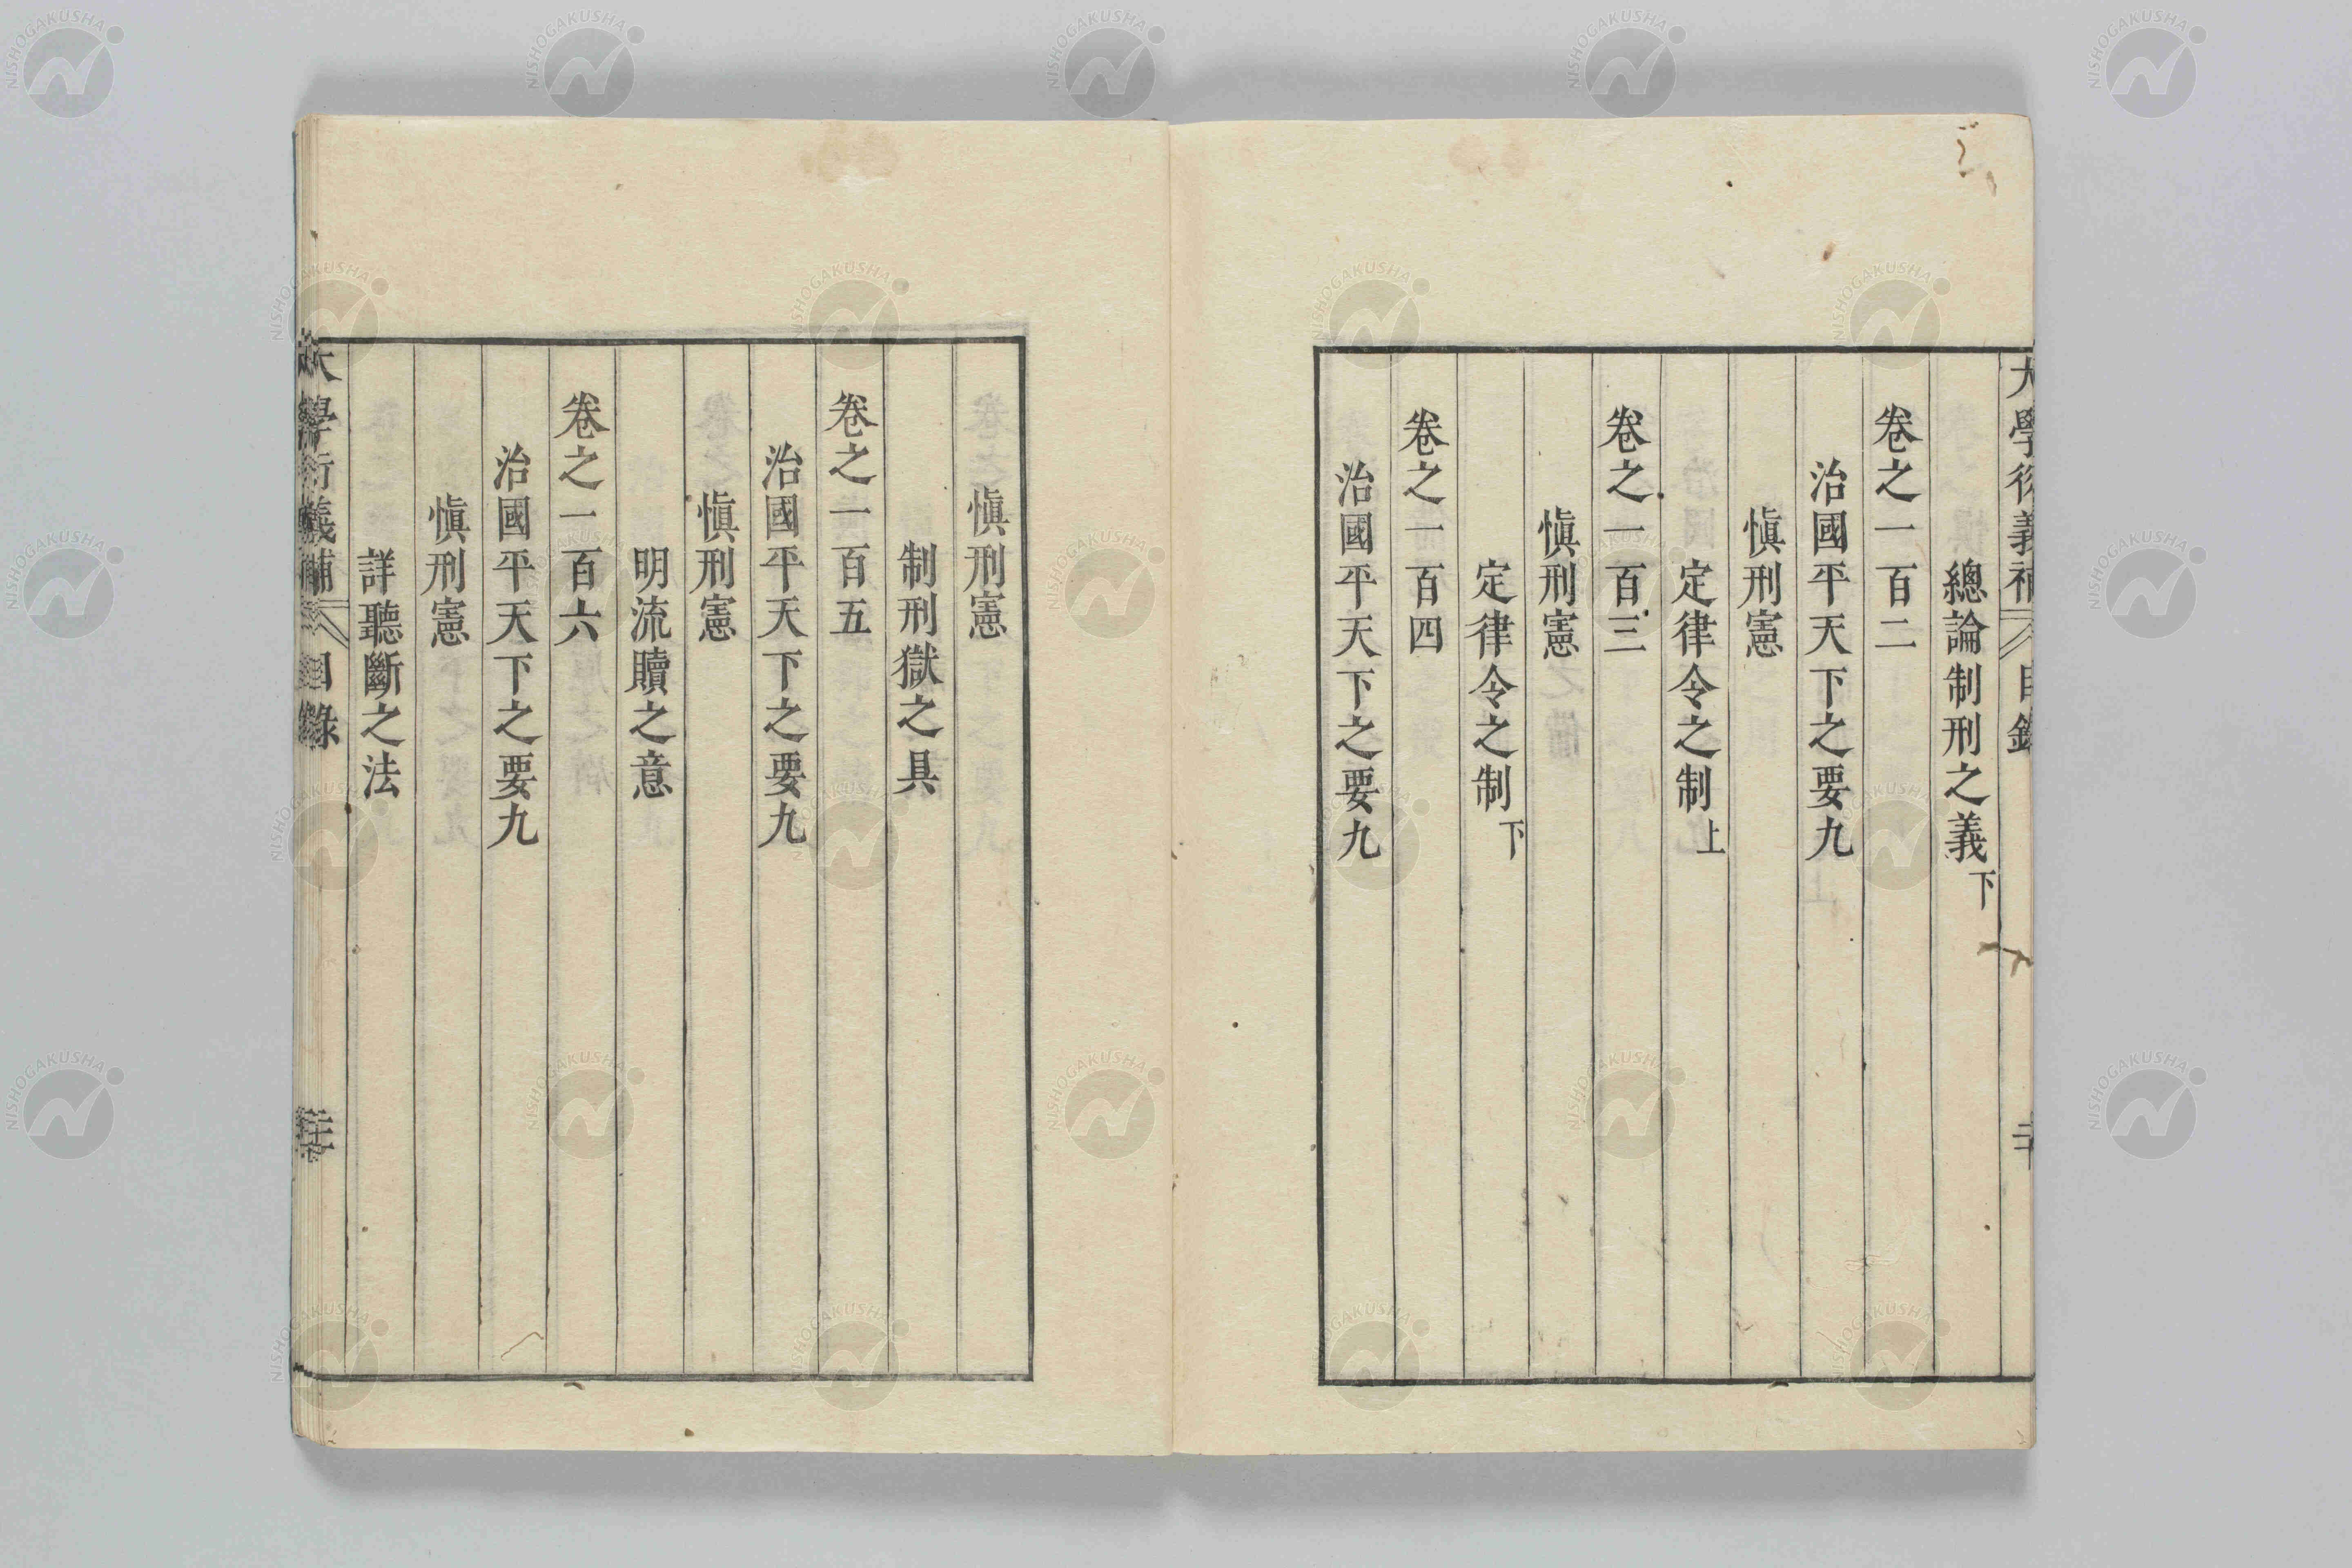 總論制刑之義下
卷之一百二
治國平天下之要九
愼刑憲
定律令之制上
卷之一百三
愼刑憲
定律令之制下
卷之一百四
治國平天下之要九
愼刑憲
制刑獄之具
卷之一百五
治國平天下之要九
愼刑憲
明流贖之意
卷之一百六
治國平天下之要九
愼刑憲
詳聽斷之法
大學衍義補 目錄
NISHOGAKUSHA